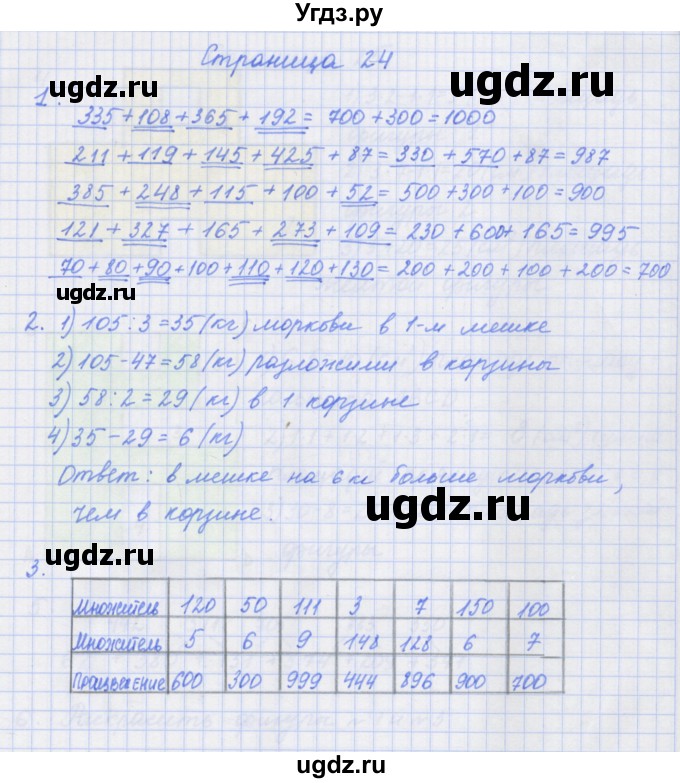 Угдз.ру
Страница 24
ugdz.ru ugdz.ru
1. 335 + 108 + 365 + 192 = 700 + 300 = 1000
211 + 119 + 145 + 425 + 87 = 330 + 570 + 87 = 987
385 + 248 + 115 + 100 + 52 = 500 + 300 + 100 = 900
121 + 327 + 165 + 273 + 109 = 230 + 600 + 165 = 995
70 + 80 + 90 + 100 + 110 + 120 + 130 = 200 + 200 + 100 + 200 = 700
ugdz.ru
2. 1) 105 : 3 = 35 (кг) моркови в 1-м мешке
2) 105 - 47 = 58 (кг) разложили в корзины
3) 58 : 2 = 29 (кг) в 1 корзине
4) 35 - 29 = 6 (кг)
Ответ: в мешке на 6 кг больше моркови,
чем в корзине.
ugdz.ru
ugdz.ru
3.
Множитель 120 50 111 3 7 150 100
Множитель 5 6 9 148 128 6 7
Произведение 600 300 999 444 896 900 700
ugdz.ru ugdz.ru